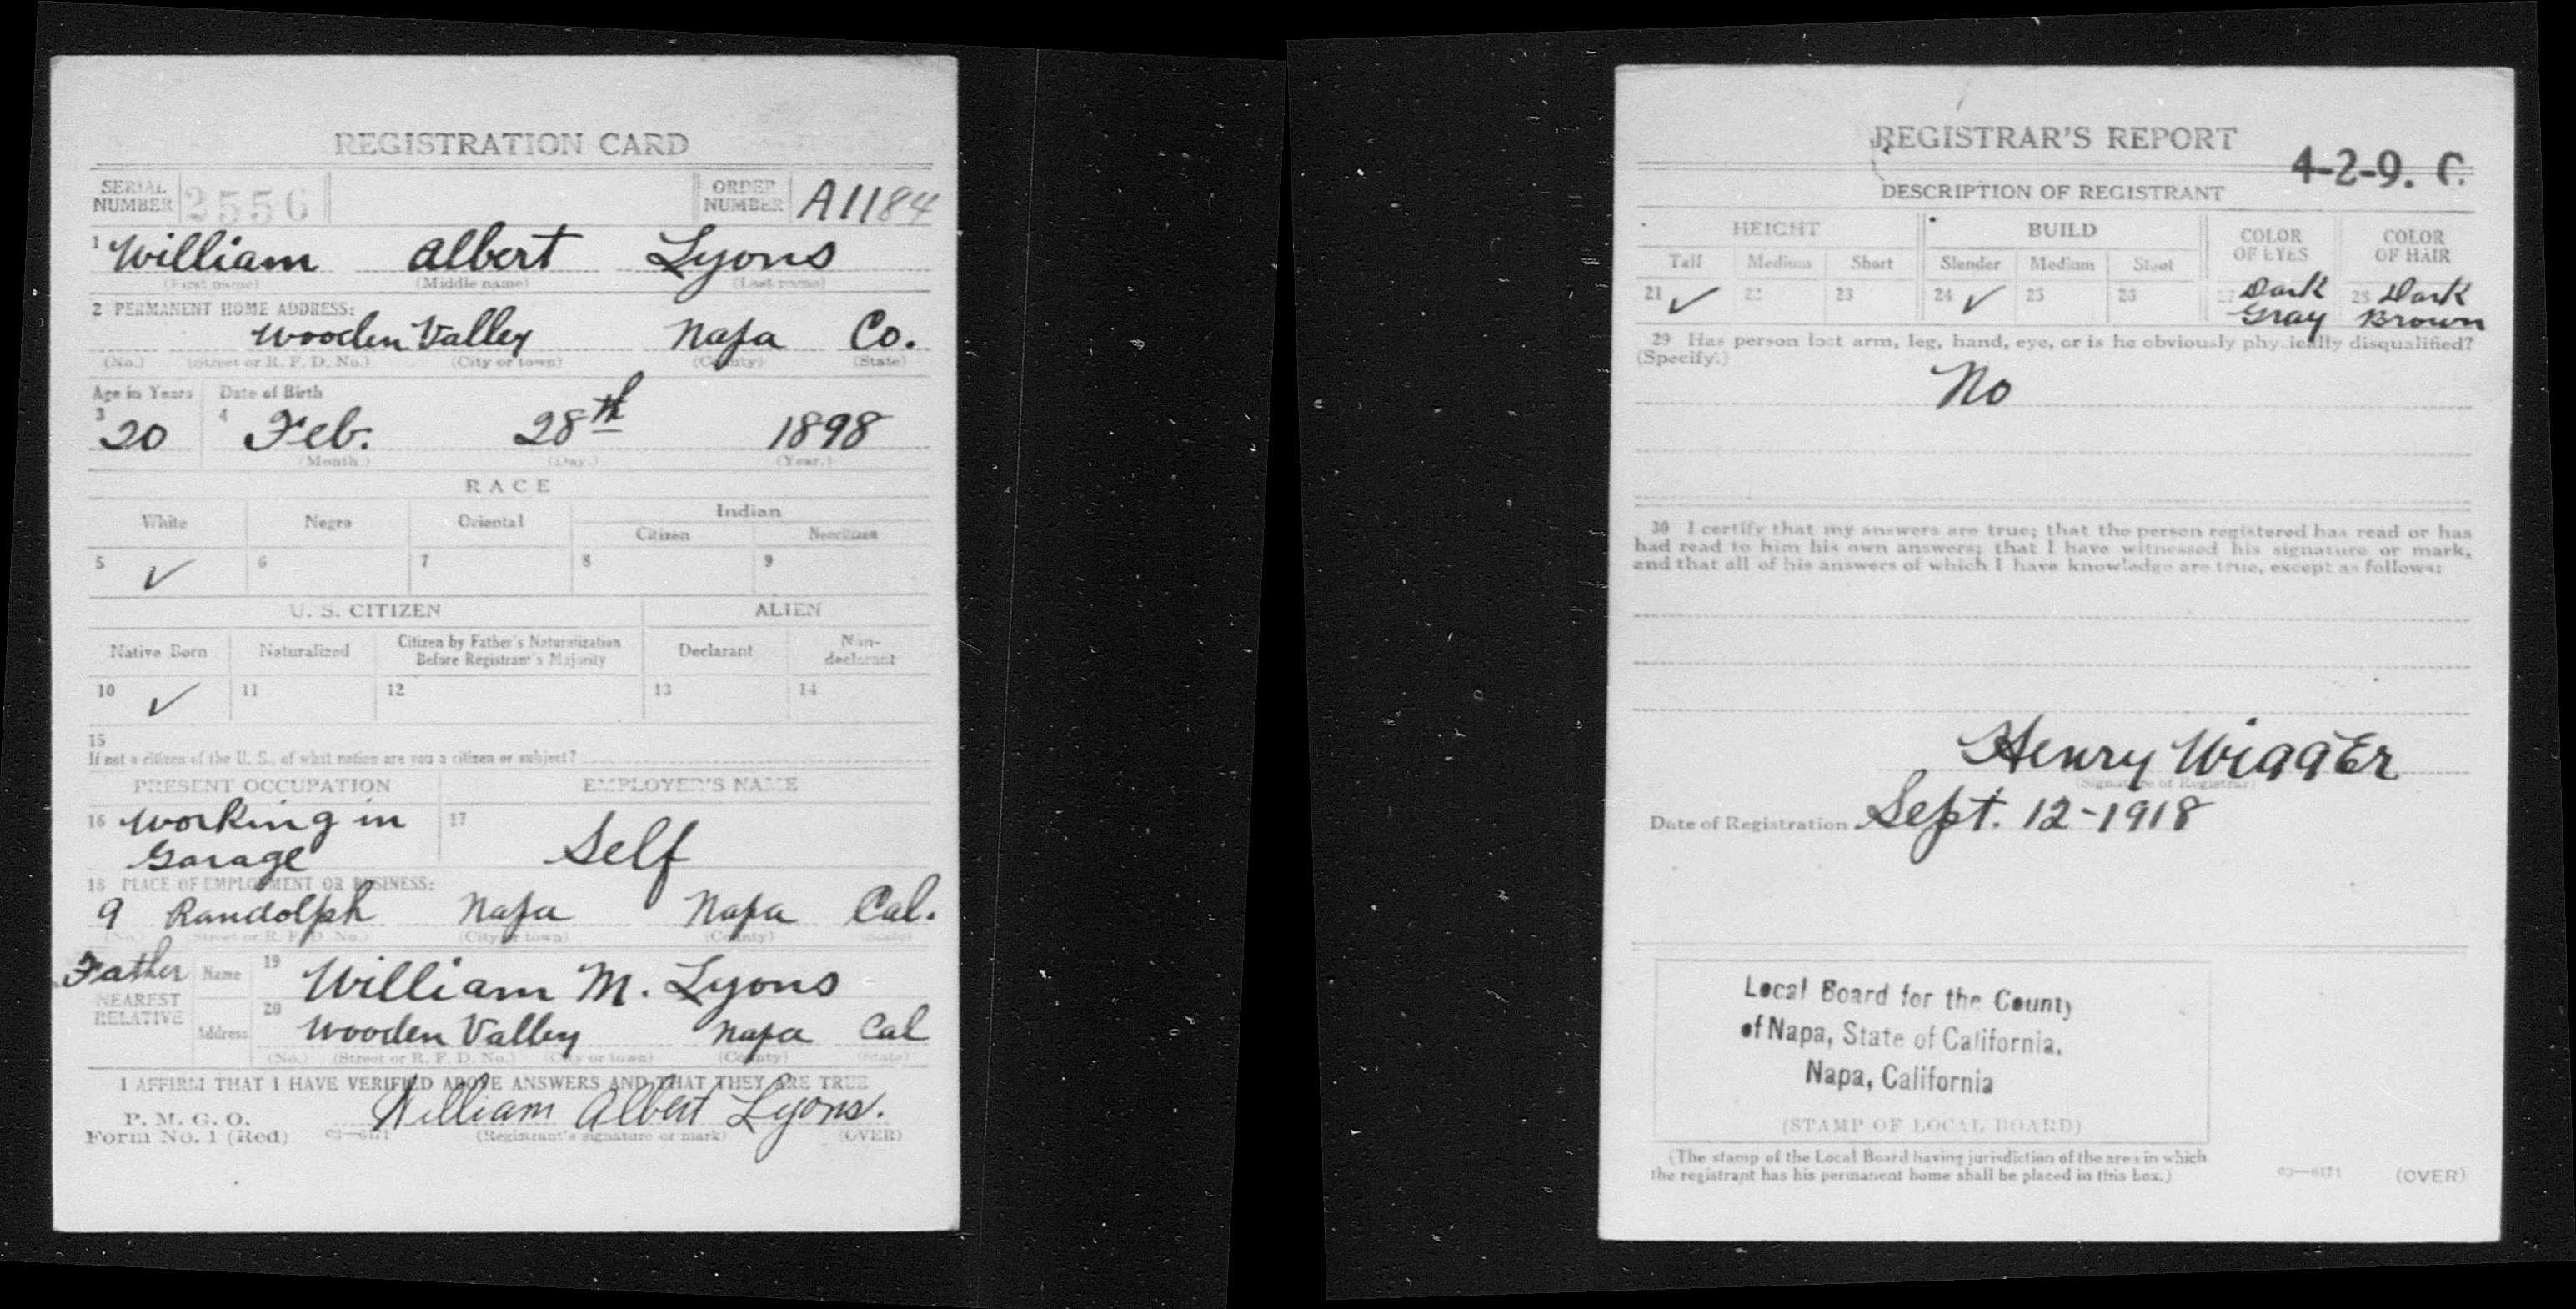 REGISTRATION CARD
SERIAL NUMBER 2556 ORDER NUMBER A1184
1 William Albert Lyons
(First name) (Middle name) (Last name)
2 PERMANENT HOME ADDRESS:
Wooden Valley Napa Co.
(No.) (Street or R. F. D. No.) (City or town) (County) (State)
Age in Years Date of Birth
3 20 4 Feb. 28th 1898
(Month.) (Day.) (Year.)
RACE
White Negro Oriental Indian
Citizen Noncitizen
5 ✓ 6 7 8 9
U. S. CITIZEN ALIEN
Native Born Naturalized Citizen by Father's Naturalization Before Registrant's Majority Declarant Non-declarant
10 ✓ 11 12 13 14
15
If not a citizen of the U. S., of what nation are you a citizen or subject?
PRESENT OCCUPATION EMPLOYER'S NAME
16 Working in 17
Garage Self
18 PLACE OF EMPLOYMENT OR BUSINESS:
9 Randolph Napa Napa Cal.
(No.) (Street or R. F. D. No.) (City or town) (County) (State)
Father Name 19 William M. Lyons
NEAREST RELATIVE
Address 20 Wooden Valley Napa Cal
(No.) (Street or R. F. D. No.) (City or town) (County) (State)
I AFFIRM THAT I HAVE VERIFIED ABOVE ANSWERS AND THAT THEY ARE TRUE
P. M. G. O. William Albert Lyons.
Form No. 1 (Red) 03—6171 (Registrant's signature or mark) (OVER)
REGISTRAR'S REPORT
4-2-9. C.
DESCRIPTION OF REGISTRANT
HEIGHT BUILD COLOR OF EYES COLOR OF HAIR
Tall Medium Short Slender Medium Stout
21 ✓ 22 23 24 ✓ 25 26 27 Dark Gray 28 Dark Brown
29 Has person lost arm, leg, hand, eye, or is he obviously physically disqualified?
(Specify.)
No
30 I certify that my answers are true; that the person registered has read or has
had read to him his own answers; that I have witnessed his signature or mark,
and that all of his answers of which I have knowledge are true, except as follows:
Henry Wigger
(Signature of Registrar)
Date of Registration Sept. 12-1918
Local Board for the County
of Napa, State of California.
Napa, California
(STAMP OF LOCAL BOARD)
(The stamp of the Local Board having jurisdiction of the area in which
the registrant has his permanent home shall be placed in this box.)
03—6171 (OVER)